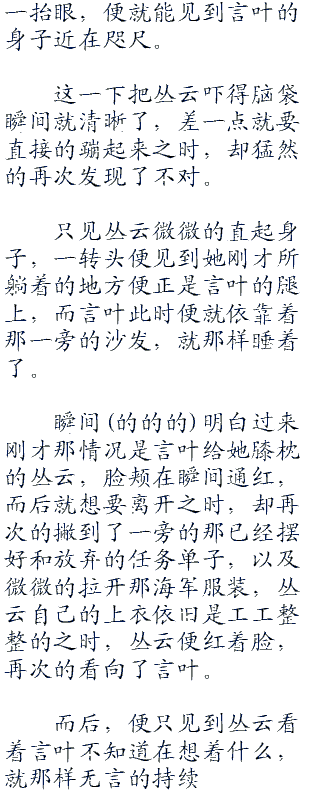 一抬眼，便就能见到言叶的
身子近在咫尺。
这一下把丛云吓得脑袋
瞬间就清晰了，差一点就要
直接的蹦起来之时，却猛然
的再次发现了不对。
只见丛云微微的直起身
子，一转头便见到她刚才所
躺着的地方便正是言叶的腿
上，而言叶此时便就依靠着
那一旁的沙发，就那样睡着
了。
瞬间(的的的)明白过来
刚才那情况是言叶给她膝枕
的丛云，脸颊在瞬间通红，
而后就想要离开之时，却再
次的撇到了一旁的那已经摆
好和放弃的任务单子，以及
微微的拉开那海军服装，丛
云自己的上衣依旧是工工整
整的之时，丛云便红着脸，
再次的看向了言叶。
而后，便只见到丛云看
着言叶不知道在想着什么，
就那样无言的持续